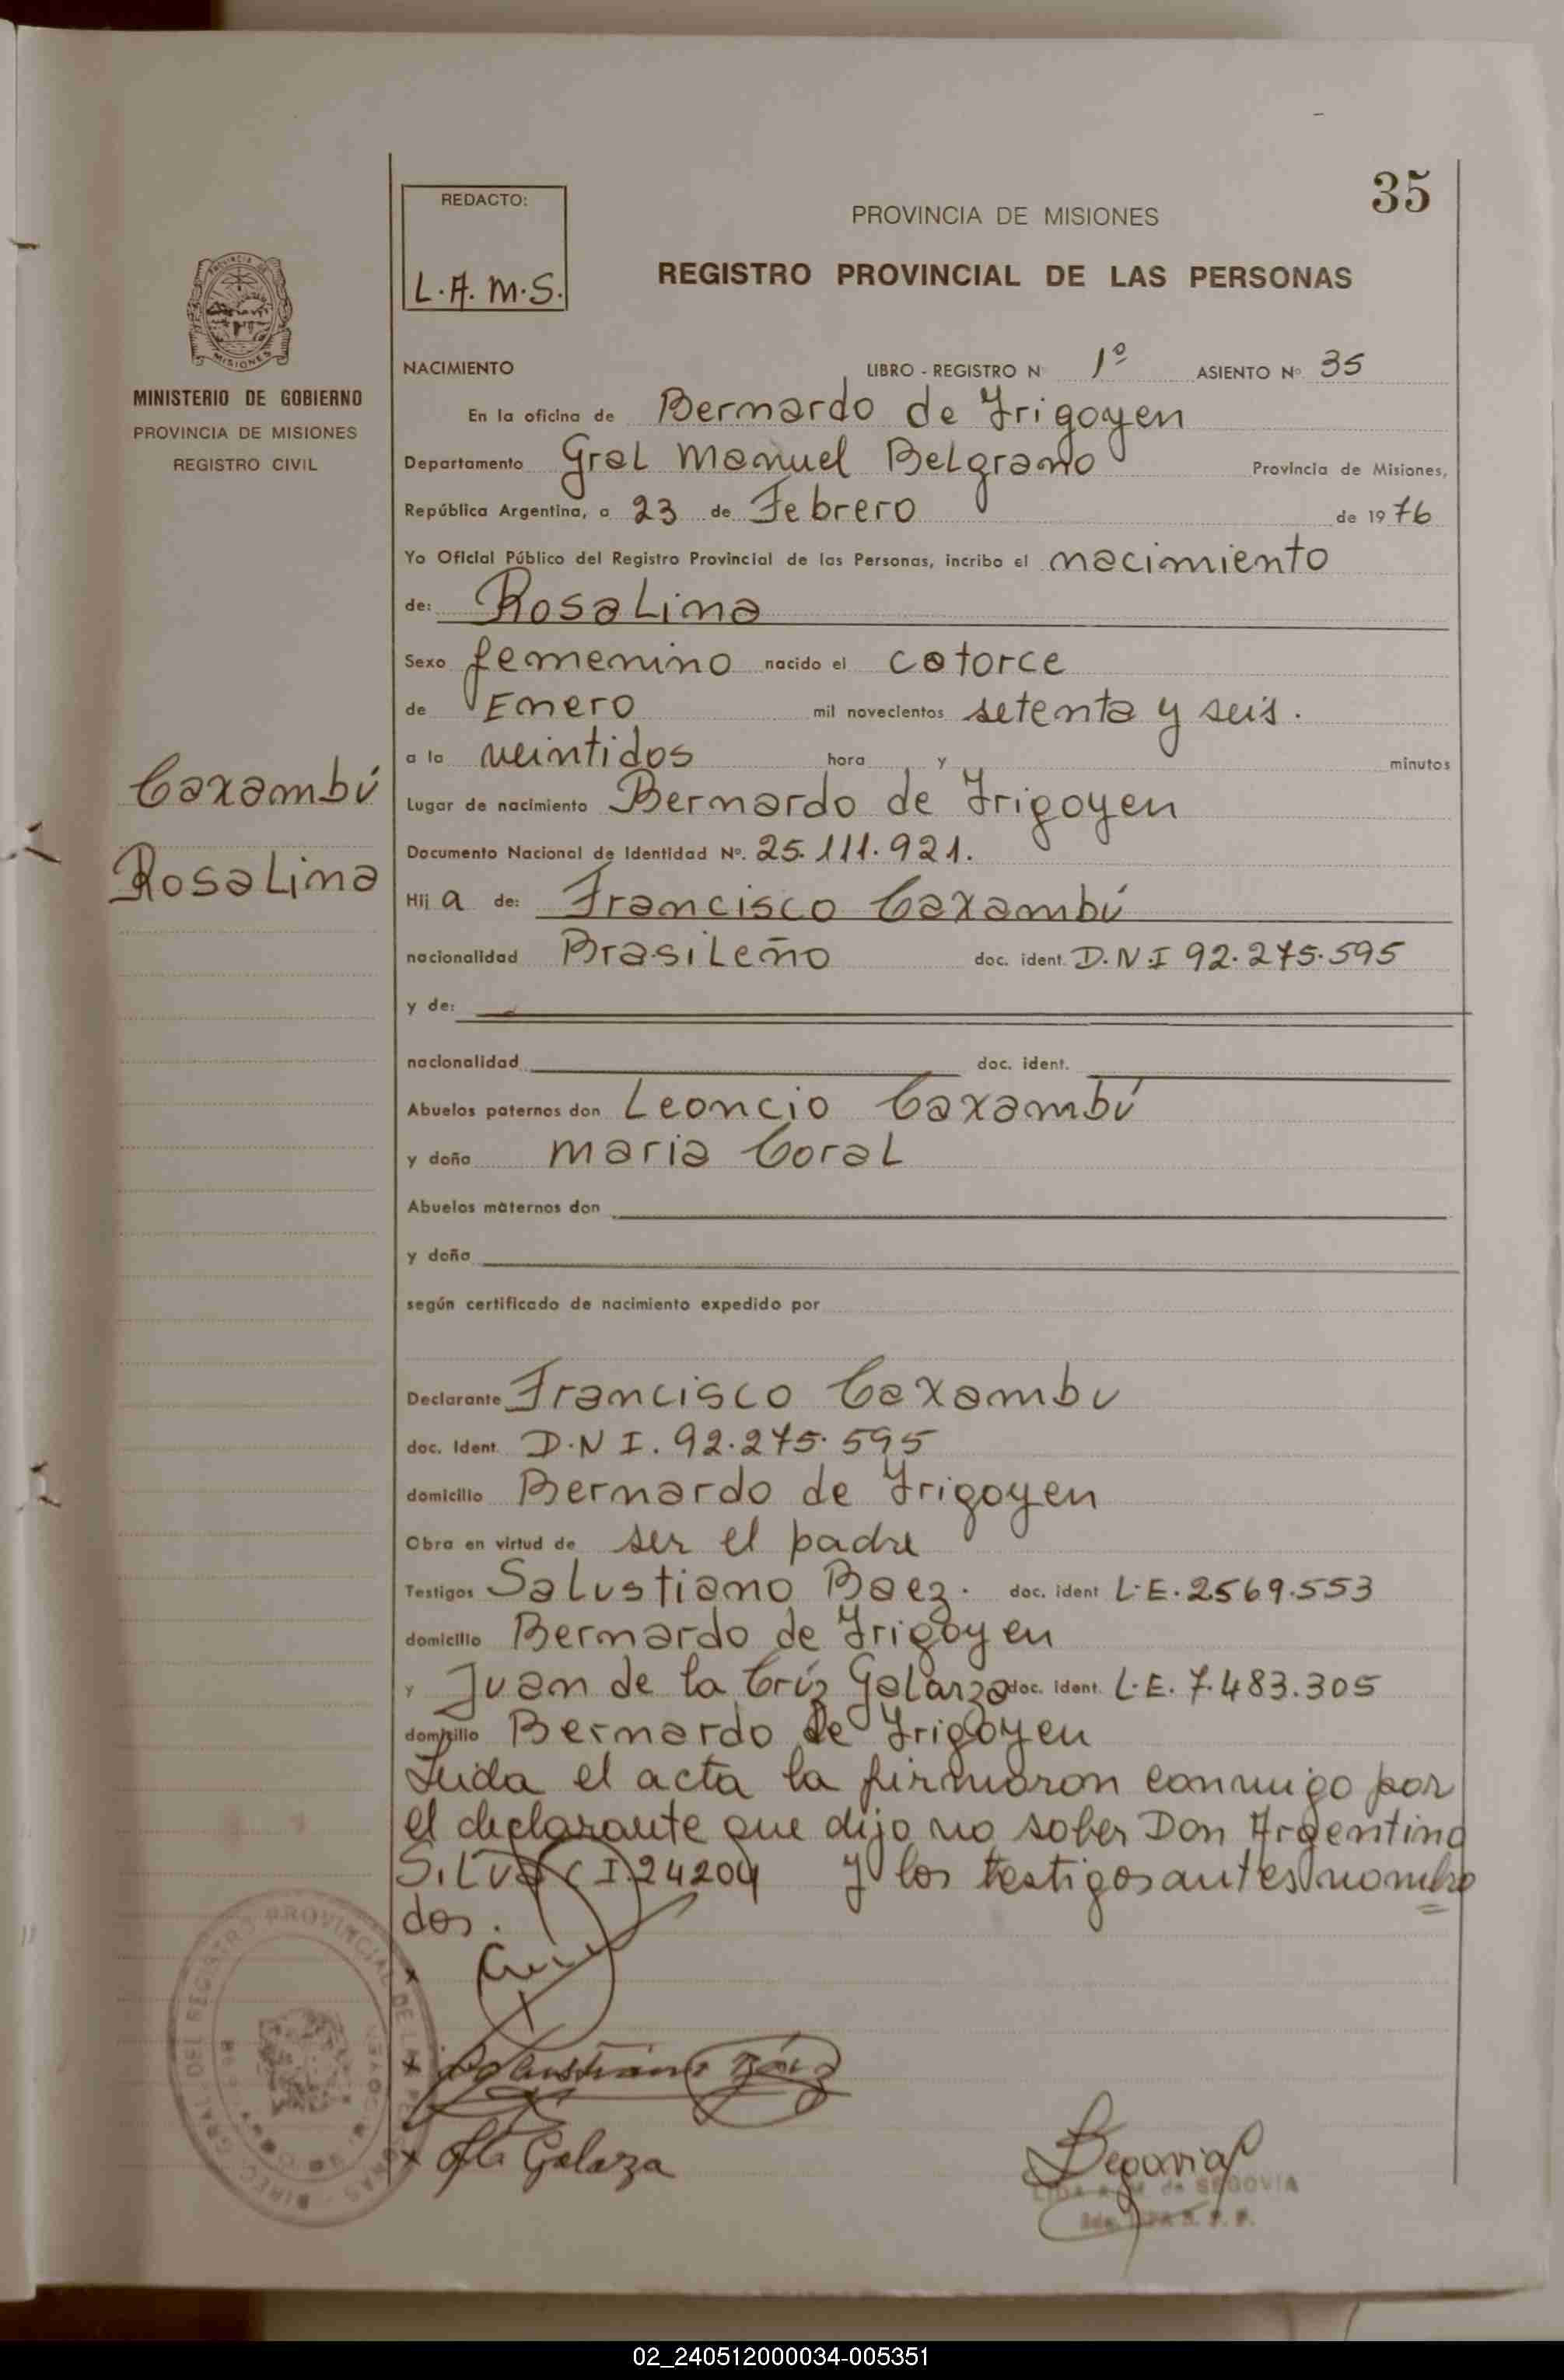 35
REDACTO:
L.A.M.S.
PROVINCIA DE MISIONES
REGISTRO PROVINCIAL DE LAS PERSONAS
MISIONES
MINISTERIO DE GOBIERNO
PROVINCIA DE MISIONES
REGISTRO CIVIL
Caxambú
Rosalina
NACIMIENTO LIBRO - REGISTRO Nº 1º ASIENTO Nº 35
En la oficina de Bernardo de Irigoyen
Departamento Gral Manuel Belgrano Provincia de Misiones,
República Argentina, a 23 de Febrero de 1976
Yo Oficial Público del Registro Provincial de las Personas, incribo el nacimiento
de: Rosalina
Sexo femenino nacido el catorce
de Enero mil novecientos setenta y seis.
a la veintidos hora y minutos
Lugar de nacimiento Bernardo de Irigoyen
Documento Nacional de Identidad Nº. 25.111.921.
Hij a de: Francisco Caxambú
nacionalidad Brasileño doc. ident. D.N.I 92.275.595
y de:
nacionalidad doc. ident.
Abuelos paternos don Leoncio Caxambú
y doña maria Coral
Abuelos maternos don
y doña
según certificado de nacimiento expedido por
Declarante Francisco Caxambu
doc. ident. D.N I. 92.275.595
domicilio Bernardo de Irigoyen
Obra en virtud de ser el padre
Testigos Salustiano Baez. doc. ident L.E. 2569.553
domicilio Bernardo de Irigoyen
y Juan de la Crúz Galarza doc. ident. L.E. 7.483.305
domicilio Bernardo de Irigoyen
Leida el acta la firmaron conmigo por
el declarante que dijo no saber Don Argentino
Silva C I 24204 y los testigos antes nombra
dos.
DIREC. GRAL. DEL REGISTRO PROVINCIAL DE LAS PERSONAS
Salustiano Báez
Galarza
Segovia
de SEGOVIA
02_240512000034-005351